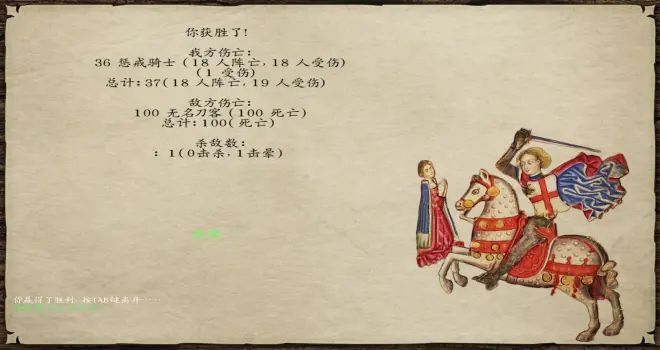 你获胜了!
我方伤亡:
36 惩戒骑士 (18 人阵亡, 18 人受伤)
(1 受伤)
总计: 37(18 人阵亡, 19 人受伤)
敌方伤亡:
100 无名刀客 (100 死亡)
总计: 100(死亡)
杀敌数:
: 1(0击杀, 1击晕)
你赢得了胜利。按TAB键离开……